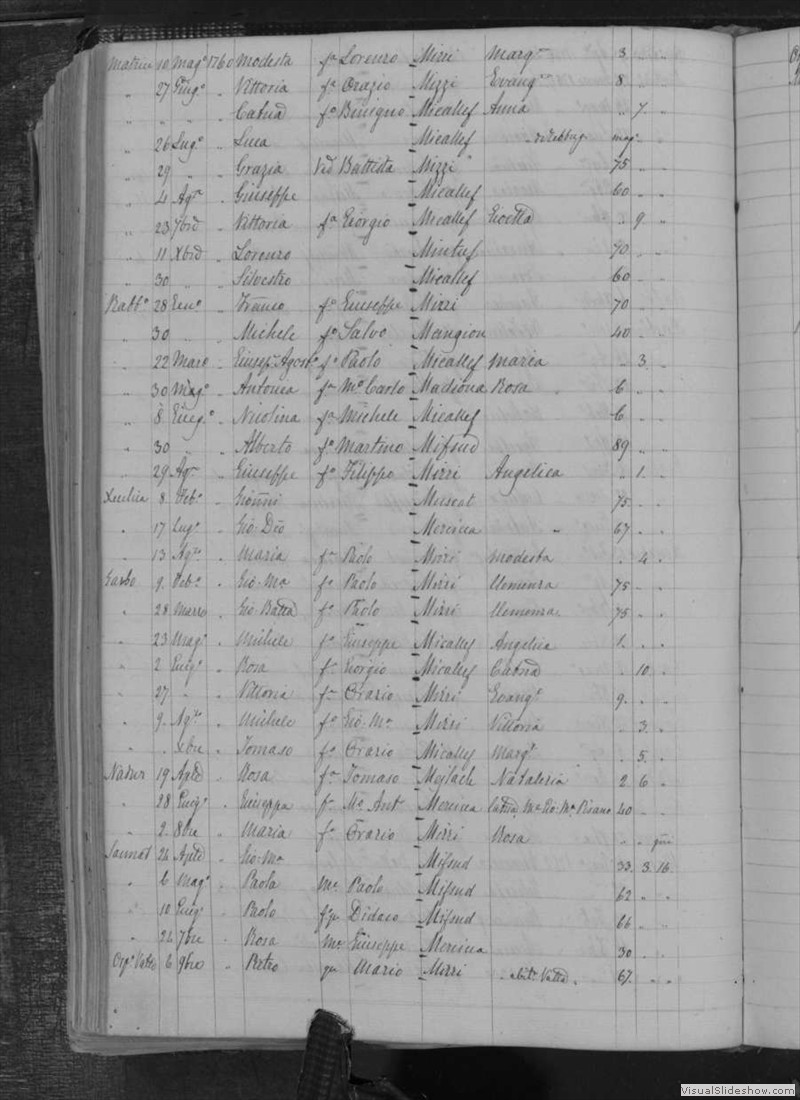 Matrice 10 Mag.o 1760 Modesta fa Lorenzo Mizzi Marg.a 3 " "
" 27 Giug.o " Vittoria fa Orazio Mizzi Evang.a 8 " "
" " " " Catnd fa Benigno Micallef Anna " 7 "
" 26 Lug.o " Luca Micallef mag.
" 29 " " Grazia Vid Battista Mizzi 75 " "
" 4 Ag.o " Giuseppe Micallef 60 " "
" 23 7bre " Vittoria fa Giorgio Micallef " 9 "
" 11 Xbre " Lorenzo Mintuf 70 " "
" 30 " " Silvestro Micallef 60 " "
Rabb.o 28 Gen.o " Franco fo Giuseppe Mizzi 70 " "
" 30 " " Michele fo Salvo Mangion 40 " "
" 22 Marz " Giusep. Agost.o fo Paolo Micallef Maria " 3 "
" 30 Mag.o " Antonia fa M.o Carlo Madiona Rosa 6 " "
" 8 Giug.o " Nicolina fa Michele Micallef 6 " "
" 30 " " Alberto fo Martino Mifsud 89 " "
" 29 Ag.o " Giuseppe fo Filippo Mizzi Angelica " 1 "
Xeuchia 8 Feb.o " Gionni Muscat 75 " "
" 17 Lug.o " Gio: Dro Mercieca 67 " "
" 13 Ag.o " Maria fa Paolo Mizzi Modesta " 4 "
Garbo 9 Feb.o " Gio: Ma fo Paolo Mizzi Clemenza 75 " "
" 28 Marzo " Gio Batta fo Paolo Mizzi Clemenza 75 " "
" 23 Mag.o " Michele fo Giuseppe Micallef Angelica 1 " "
" 2 Giug.o " Rosa fa Giorgio Micallef Catnd " 10 "
" 27 " " Vittoria fa Orazio Mizzi Evang.a 9 " "
" 9 Ag.o " Michele fo Gio: Ma Mizzi Vittoria " 3 "
" " Xbre " Tomaso fo Orazio Micallef Marg.a " 5 "
Nadur 19 Aple " Rosa fa Tomaso Mejlach Nataleria 2 6 "
" 28 Giug.o " Giuseppa fa M.o Ant Mercieca Catna, M.e Gio: Ma Pisano 40 " "
" 2 8bre " Maria fa Orazio Mizzi Rosa " "
Sannat 24 Aple " Gio: Ma Mifsud 33 3 16
" 6 Mag.o " Paola M.e Paolo Mifsud 62 " "
" 10 Giug.o " Paolo Didaco Mifsud 66 " "
" 24 7bre " Rosa M.e Giuseppe Mercieca 30 " "
Osp.e Vatta 6 9bre " Pietro qm Mario Mizzi Vatta. 67 " "
VisualSlideshow.com